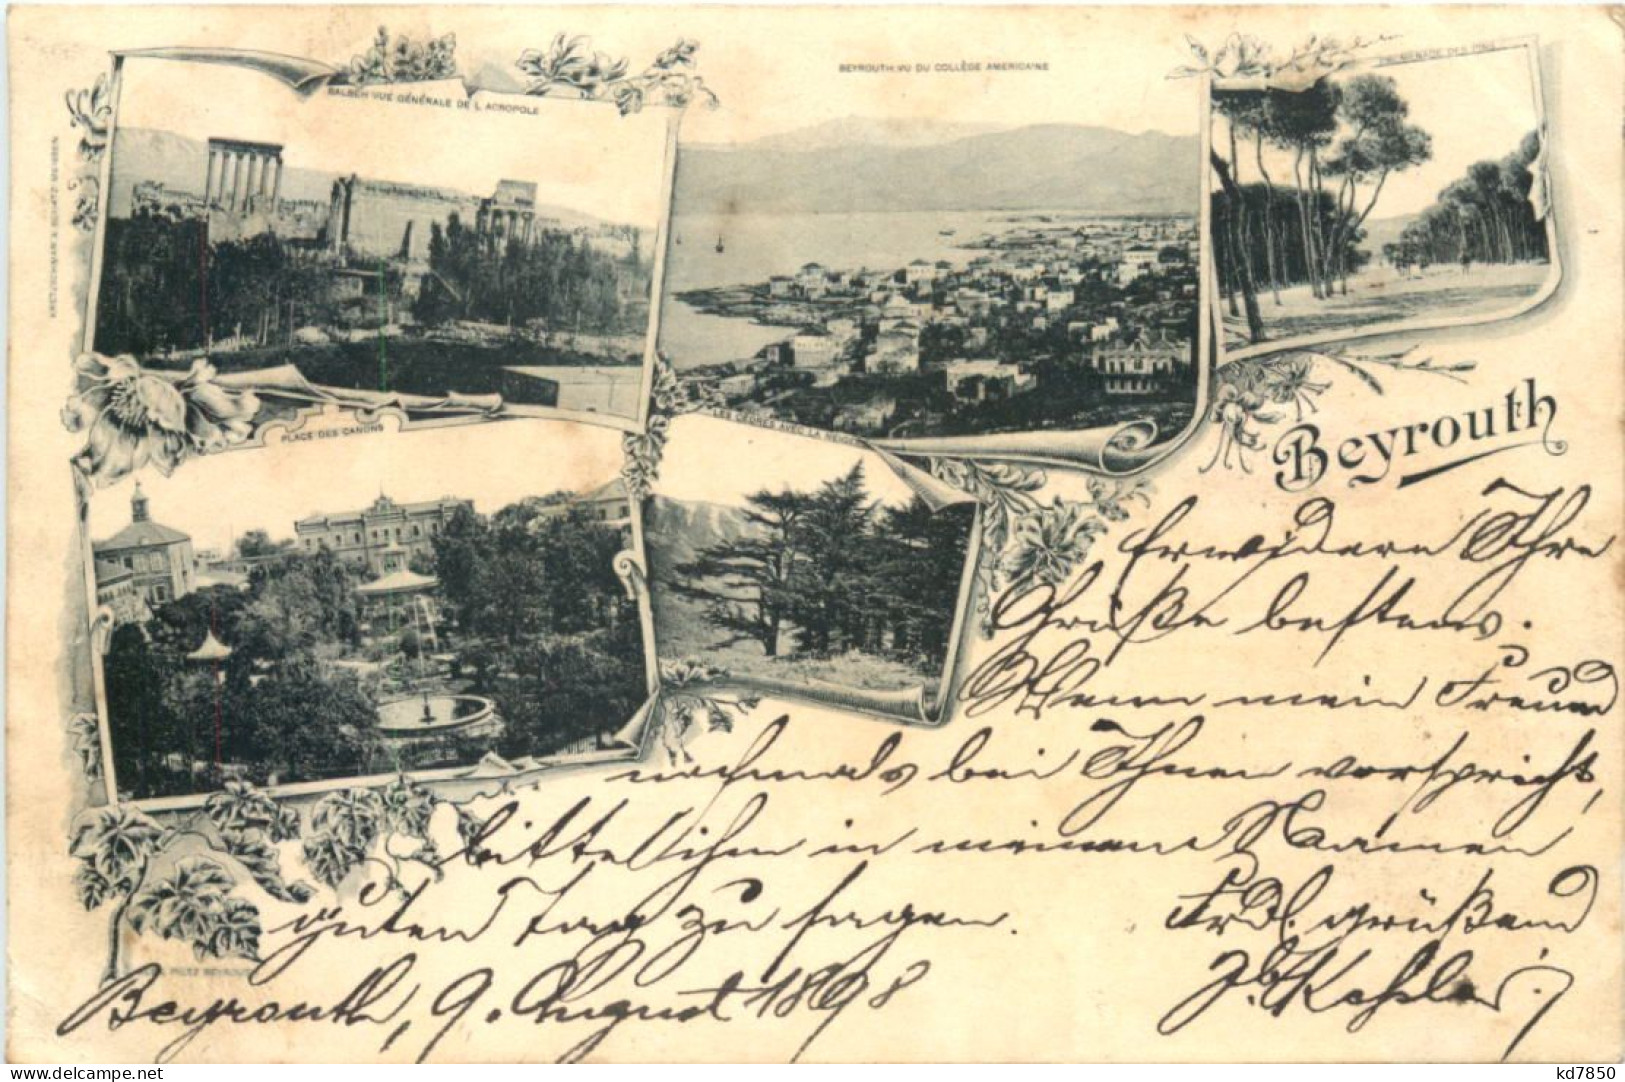 BALBEK VUE GÉNÉRALE DE L ACROPOLE
BEYROUTH VU DU COLLÈGE AMERICAINE
PROMENADE DES PINS
PLACE DES CANONS
LES CÈDRES AVEC LA NEIGE
Beyrouth
Erwidern Ihre
Grüße bestens.
Wenn mein Freund
nochmals bei Ihnen vorspricht,
bitte ihm in meinem Namen
guten Tag zu sagen.
Frdl. grüßend
Kohler
Beyrouth, 9. August 1898
kd7850
delcampe.net